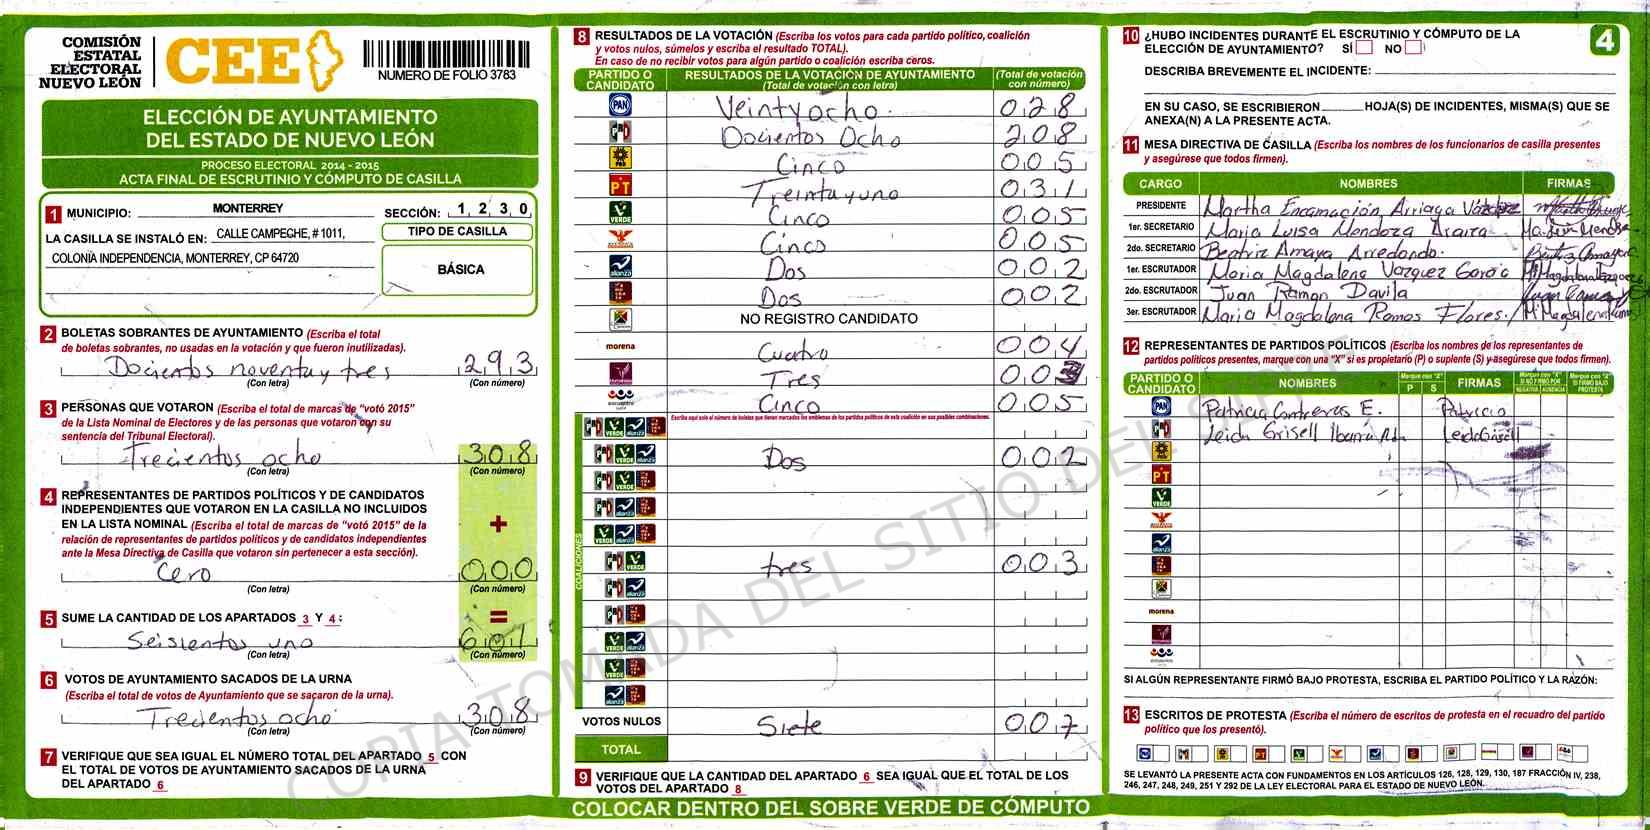 COMISIÓN
ESTATAL
ELECTORAL
NUEVO LEÓN
CEE
NUMERO DE FOLIO 3783
ELECCIÓN DE AYUNTAMIENTO
DEL ESTADO DE NUEVO LEÓN
PROCESO ELECTORAL 2014 - 2015
ACTA FINAL DE ESCRUTINIO Y CÓMPUTO DE CASILLA
1 MUNICIPIO: MONTERREY SECCIÓN: 1 2 3 0
LA CASILLA SE INSTALÓ EN: CALLE CAMPECHE, # 1011,
COLONIA INDEPENDENCIA, MONTERREY, CP 64720
TIPO DE CASILLA
BÁSICA
2 BOLETAS SOBRANTES DE AYUNTAMIENTO (Escriba el total
de boletas sobrantes, no usadas en la votación y que fueron inutilizadas).
Docientos noventa y tres 2 9 3
(Con letra) (Con número)
3 PERSONAS QUE VOTARON (Escriba el total de marcas de "votó 2015"
de la Lista Nominal de Electores y de las personas que votaron con su
sentencia del Tribunal Electoral).
Trecientos ocho 3 0 8
(Con letra) (Con número)
4 REPRESENTANTES DE PARTIDOS POLÍTICOS Y DE CANDIDATOS
INDEPENDIENTES QUE VOTARON EN LA CASILLA NO INCLUIDOS
EN LA LISTA NOMINAL (Escriba el total de marcas de "votó 2015" de la
relación de representantes de partidos políticos y de candidatos independientes
ante la Mesa Directiva de Casilla que votaron sin pertenecer a esta sección).
+
Cero 0 0 0
(Con letra) (Con número)
5 SUME LA CANTIDAD DE LOS APARTADOS 3 Y 4 : =
Seisientos uno 6 0 1
(Con letra) (Con número)
6 VOTOS DE AYUNTAMIENTO SACADOS DE LA URNA
(Escriba el total de votos de Ayuntamiento que se sacaron de la urna).
Trecientos ocho 3 0 8
(Con letra) (Con número)
7 VERIFIQUE QUE SEA IGUAL EL NÚMERO TOTAL DEL APARTADO 5 CON
EL TOTAL DE VOTOS DE AYUNTAMIENTO SACADOS DE LA URNA
DEL APARTADO 6
8 RESULTADOS DE LA VOTACIÓN (Escriba los votos para cada partido político, coalición
y votos nulos, súmelos y escriba el resultado TOTAL).
En caso de no recibir votos para algún partido o coalición escriba ceros.
PARTIDO O CANDIDATO RESULTADOS DE LA VOTACIÓN DE AYUNTAMIENTO (Total de votación con letra) (Total de votación con número)
PAN Veintyocho. 0 2 8
PRI Docientos Ocho 2 0 8
PRD Cinco 0 0 5
PT Treintayuno 0 3 1
VERDE Cinco 0 0 5
Cinco 0 0 5
alianza Dos 0 0 2
Dos 0 0 2
NO REGISTRO CANDIDATO
morena Cuatro 0 0 4
Tres 0 0 3
encuentro Cinco 0 0 5
Escriba aquí solo el número de boletas que tienen marcados los emblemas de los partidos políticos de esta coalición en sus posibles combinaciones.
COALICIONES
PRI VERDE alianza Dos 0 0 2
PRI VERDE tres 0 0 3
VOTOS NULOS Siete 0 0 7
TOTAL
9 VERIFIQUE QUE LA CANTIDAD DEL APARTADO 6 SEA IGUAL QUE EL TOTAL DE LOS
VOTOS DEL APARTADO 8
COLOCAR DENTRO DEL SOBRE VERDE DE CÓMPUTO
10 ¿HUBO INCIDENTES DURANTE EL ESCRUTINIO Y CÓMPUTO DE LA
ELECCIÓN DE AYUNTAMIENTO? SÍ NO
4
DESCRIBA BREVEMENTE EL INCIDENTE:
EN SU CASO, SE ESCRIBIERON HOJA(S) DE INCIDENTES, MISMA(S) QUE SE
ANEXA(N) A LA PRESENTE ACTA.
11 MESA DIRECTIVA DE CASILLA (Escriba los nombres de los funcionarios de casilla presentes
y asegúrese que todos firmen).
CARGO NOMBRES FIRMAS
PRESIDENTE Martha Encarnación Arriaga
1er. SECRETARIO Maria Luisa Mendoza Ma. Luisa Mendoza
2do. SECRETARIO Beatriz Amaya Arredondo. Beatriz Amaya
1er. ESCRUTADOR Maria Magdalena Vazquez Garcia
2do. ESCRUTADOR Juan Ramon Davila
3er. ESCRUTADOR Maria Magdalena Ramos Flores.
12 REPRESENTANTES DE PARTIDOS POLÍTICOS (Escriba los nombres de los representantes de
partidos políticos presentes, marque con una "X" si es propietario (P) o suplente (S) y asegúrese que todos firmen).
PARTIDO O CANDIDATO NOMBRES Marque con "X" P S FIRMAS Marque con "X" SI NO FIRMÓ POR NEGATIVA AUSENCIA Marque con "X" SI FIRMÓ BAJO PROTESTA
PAN Patricia Contreras E. Patricia
PRI Leida Grisell Leida Grisell
PRD
PT
VERDE
alianza
morena
SI ALGÚN REPRESENTANTE FIRMÓ BAJO PROTESTA, ESCRIBA EL PARTIDO POLÍTICO Y LA RAZÓN:
13 ESCRITOS DE PROTESTA (Escriba el número de escritos de protesta en el recuadro del partido
político que los presentó).
SE LEVANTÓ LA PRESENTE ACTA CON FUNDAMENTOS EN LOS ARTÍCULOS 126, 128, 129, 130, 187 FRACCIÓN IV, 238,
246, 247, 248, 249, 251 Y 292 DE LA LEY ELECTORAL PARA EL ESTADO DE NUEVO LEÓN.
COPIA TOMADA DEL SITIO DEL SIPRE